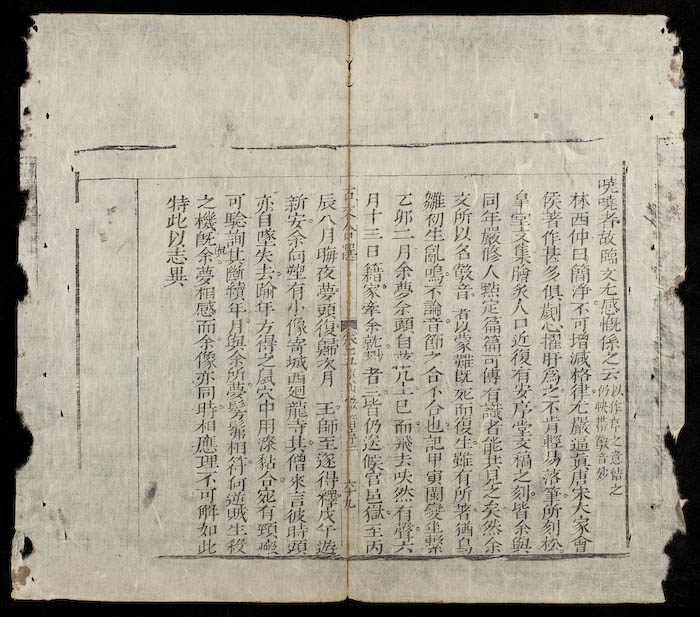 曉曉者故臨文尤感慨係之云 以作序之意結之
仍映帶鷇音妙
林西仲曰簡淨不可增減格律尤嚴逼真唐宋大家會
侯著作甚多俱劌心擢肝為之不肯輕易落筆所刻松
皐堂文集膾炙人口近復有安序堂文稿之刻皆余與
同年嚴修人點定篇篇可傳有識者能共見之矣然余
文所以名鷇音者以蒙難旣死而復生雖有所著猶鳥
雛初生亂鳴不論音節之合不合也記甲寅閩變坐繫
乙卯二月余夢余頭自
月十三日籍家牽余就戮者三皆仍送候官邑獄至丙
古文合選
卷
六十九
辰八月晦夜夢頭復歸次月 王師至遂得釋戊午遊
新安余向塑有小像寄城西廻龍寺其僧來言彼時頭
亦自墜失去踰年方得之鼠穴中用漆黏合宛有頸痕
可驗詢其斷續年月與余所夢髣髴相符何逆賊生殺
之機旣與余夢相感而余像亦同時相應理不可解如此
特此以志異